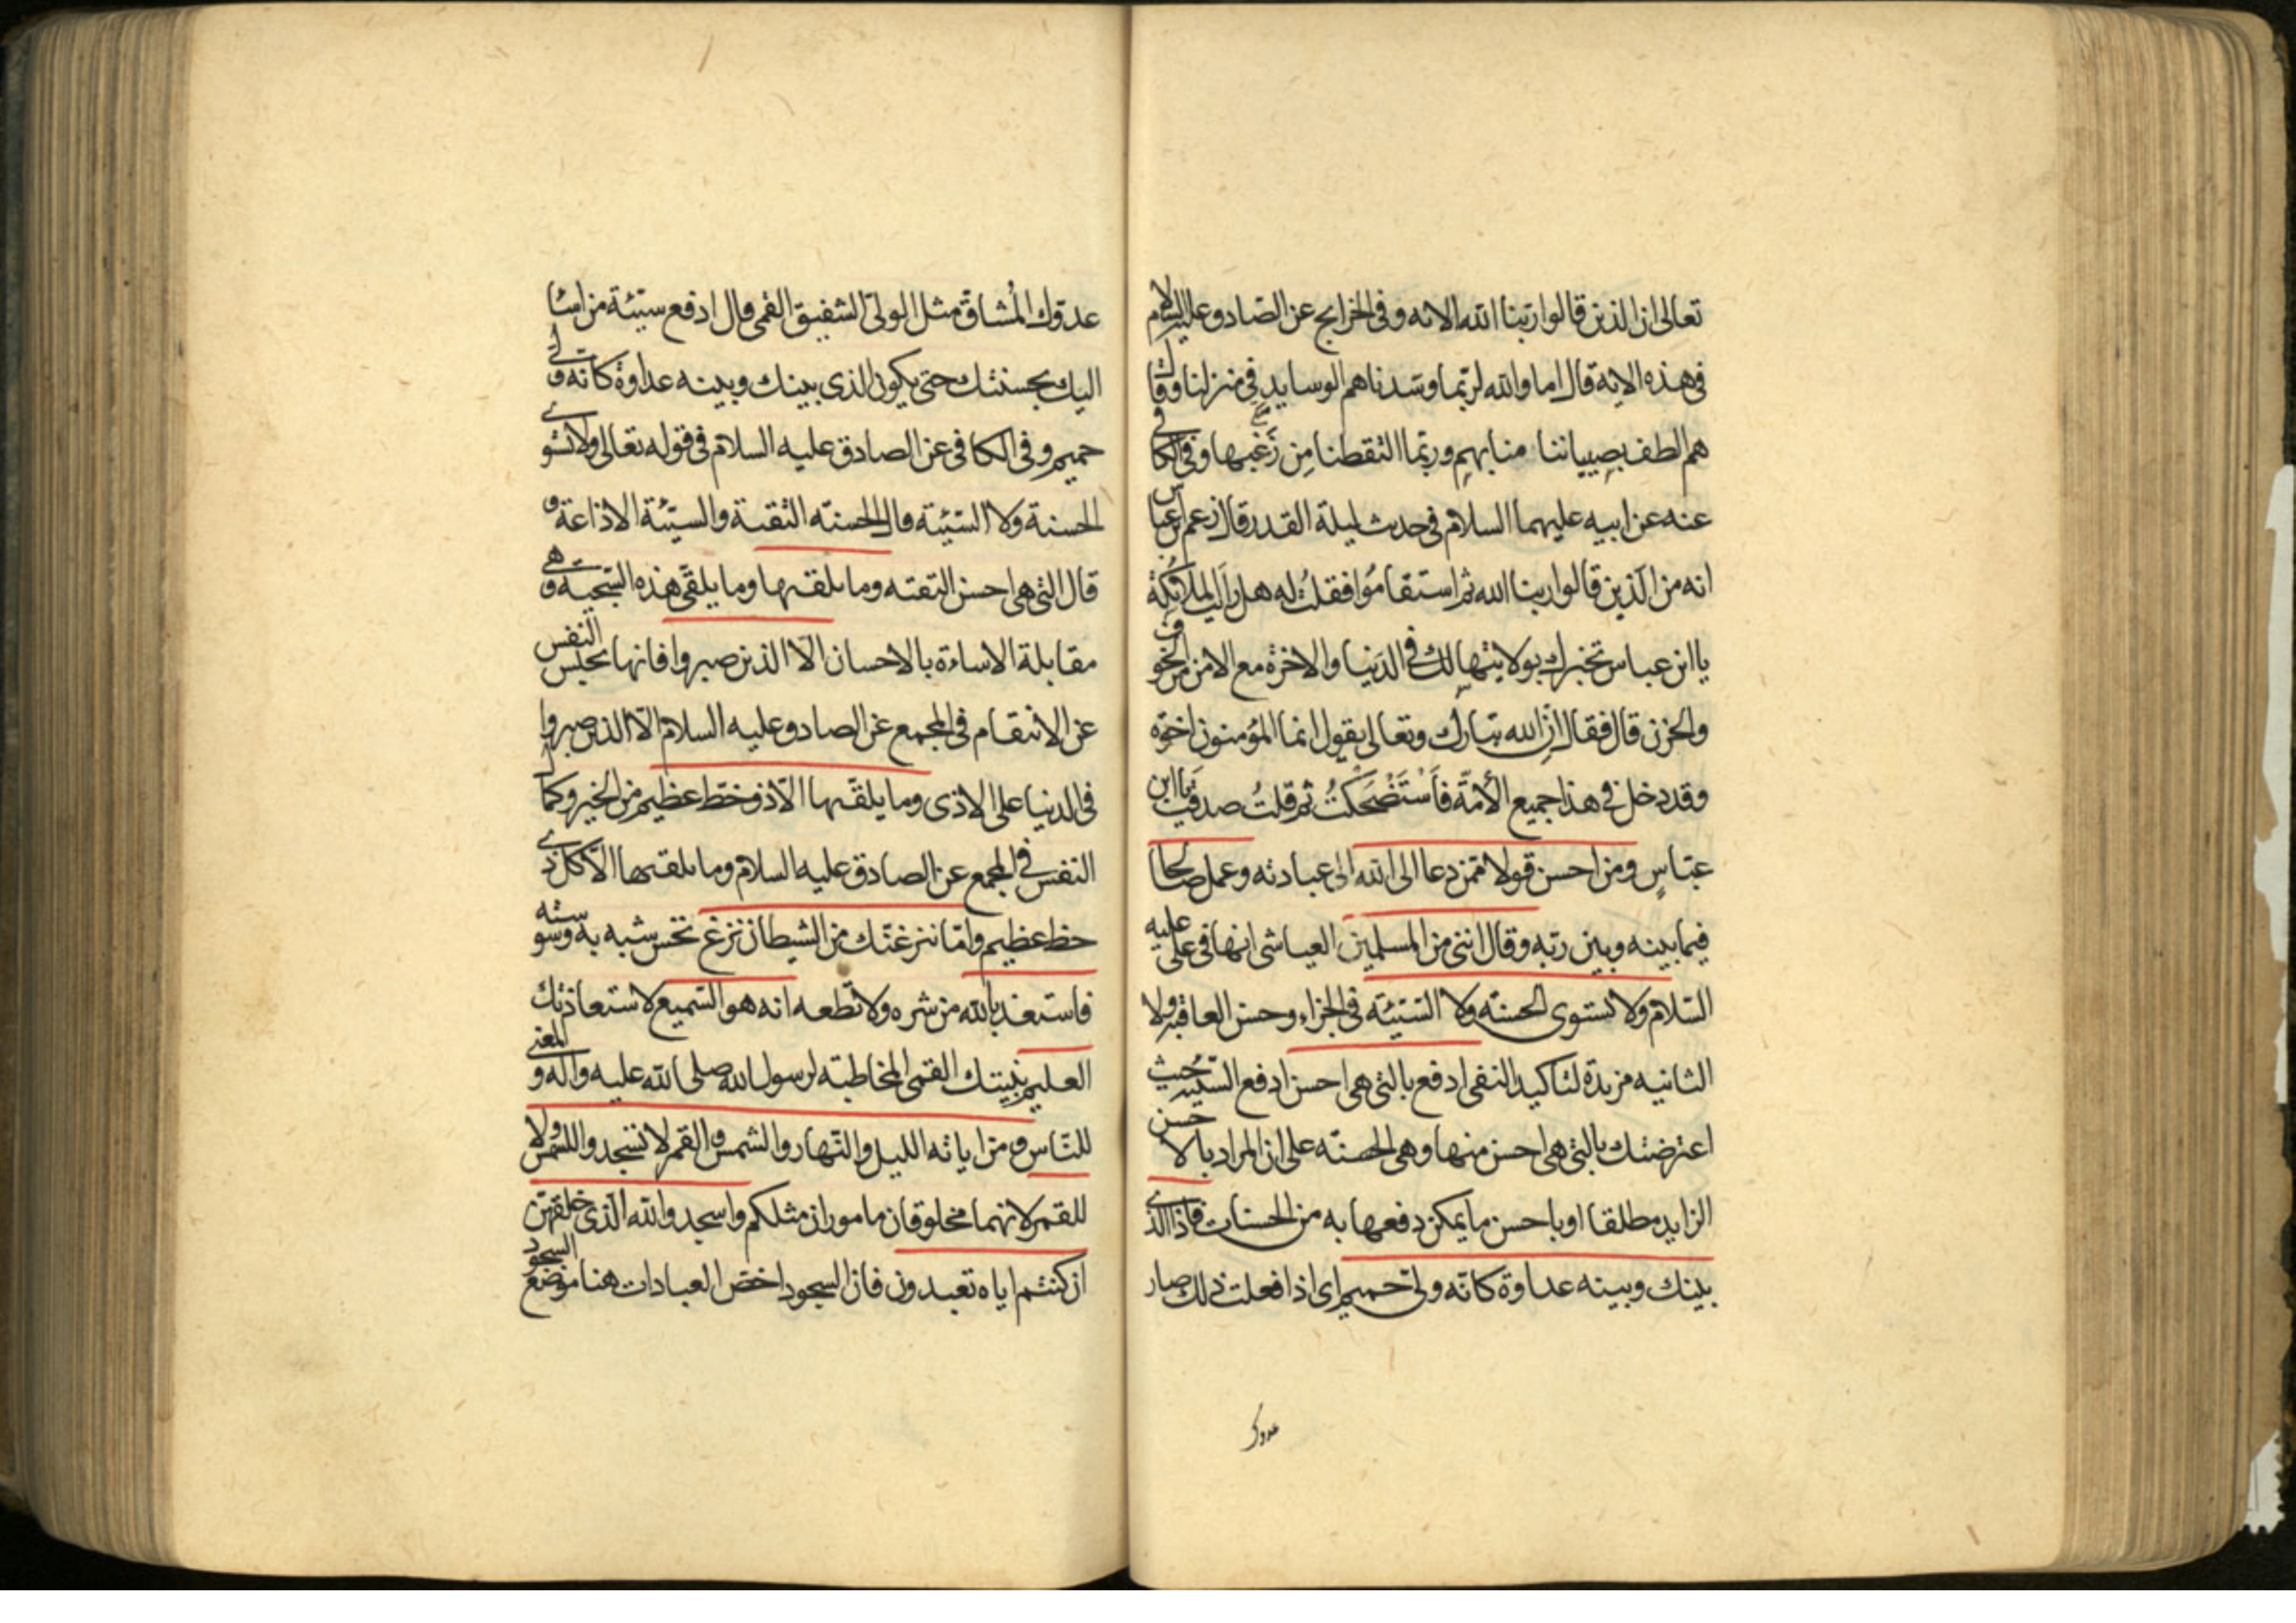 تعالى ان الذين قالوا ربنا الله الايه وفى الخرايج عن الصادق عليه السلام
فى هذه الاية قال اما والله لربّما وسّدناهم الوسايد فى منزلنا وقال
هم الطف بصبياننا منا بهم وربّما التقطنا مِن زَغَبها وفى الكافى
عنه عن ابيه عليهما السلام فى حديث ليلة القدر قال زعم ابن عباس
انه من الّذين قالوا ربنا الله ثم استقاموُا فقلتُ له هل رايت الملائكة
يا ابن عباس تخبرك بولايتها لك فى الدنيا والاخرة مع الامن من الخوف
والحزن قال فقال انّ الله تبارك وتعالى يقول انما المؤمنون اخوة
وقد دخل فى هذا جميع الأمّة فَاَسْتَضْحَكْتُ ثم قلتُ صدقت يا ابن
عبّاسٍ ومن احسن قولا ممّن دعا الى الله الى عبادته وعمل صالحا
فيما بينه وبين ربّه وقال اننى من المسلمين العياشى انها فى على عليه
السّلام ولا تستوى الحسنة ولا السّيئة فى الجزاء وحسن العاقبة ولا
الثانيه مزيدة لتاكيد النفى ادفع بالتى هى احسن ادفع السيئة حيث
اعترضتك بالتى هى احسن منها وهى الحسنة على ان المراد بالاحسن
الزايد مطلقا او باحسن ما يمكن دفعها به من الحسنات فاذا الذى
بينك وبينه عداوة كانّه ولىّ حميم اى اذا فعلت ذلك صار
عدوك
عدوّك المُشاقّ مثل الولىّ الشفيق القمى قال ادفع سيّئة من اساء
اليك بحسنتك حتى يكون الذى بينك وبينه عداوة كانّه ولى
حميم وفى الكافى عن الصادق عليه السلام فى قوله تعالى ولا تستوى
الحسنة ولا السّيئة قال الحسنة التقية والسيّئة الاذاعة و
قال التى هى احسن التقية وما يلقيها وما يلقّى هذه السّجية وهى
مقابلة الاساءة بالاحسان الّا الذين صبروا فانها تحبس النفس
عن الانتقام فى المجمع عن الصادق عليه السلام الّا الذين صبروا
فى الدنيا على الاذى وما يلقّيها الّا ذو حظّ عظيم من الخير وكمال
النفس فى المجمع عن الصادق عليه السلام وما يلقيها الّا كل ذى
حظ عظيم وامّا ينزغنّك من الشيطان نزغ نخس شبه به وسوسته
فاستعذ بالله من شره ولا تطعه انه هو السّميع لاستعاذتك
العليم بنيتك القمى المخاطبة لرسول الله صلى الله عليه واله والمعنى
للنّاس ومن اياته الليل والنّهار والشمس والقمر لا تسجدوا للشمس ولا
للقمر لانهما مخلوقان ماموران مثلكم واسجدوا لله الّذى خلقهنّ
ان كنتم اياه تعبدون فان السجود اخصّ العبادات هنا موضع السجود